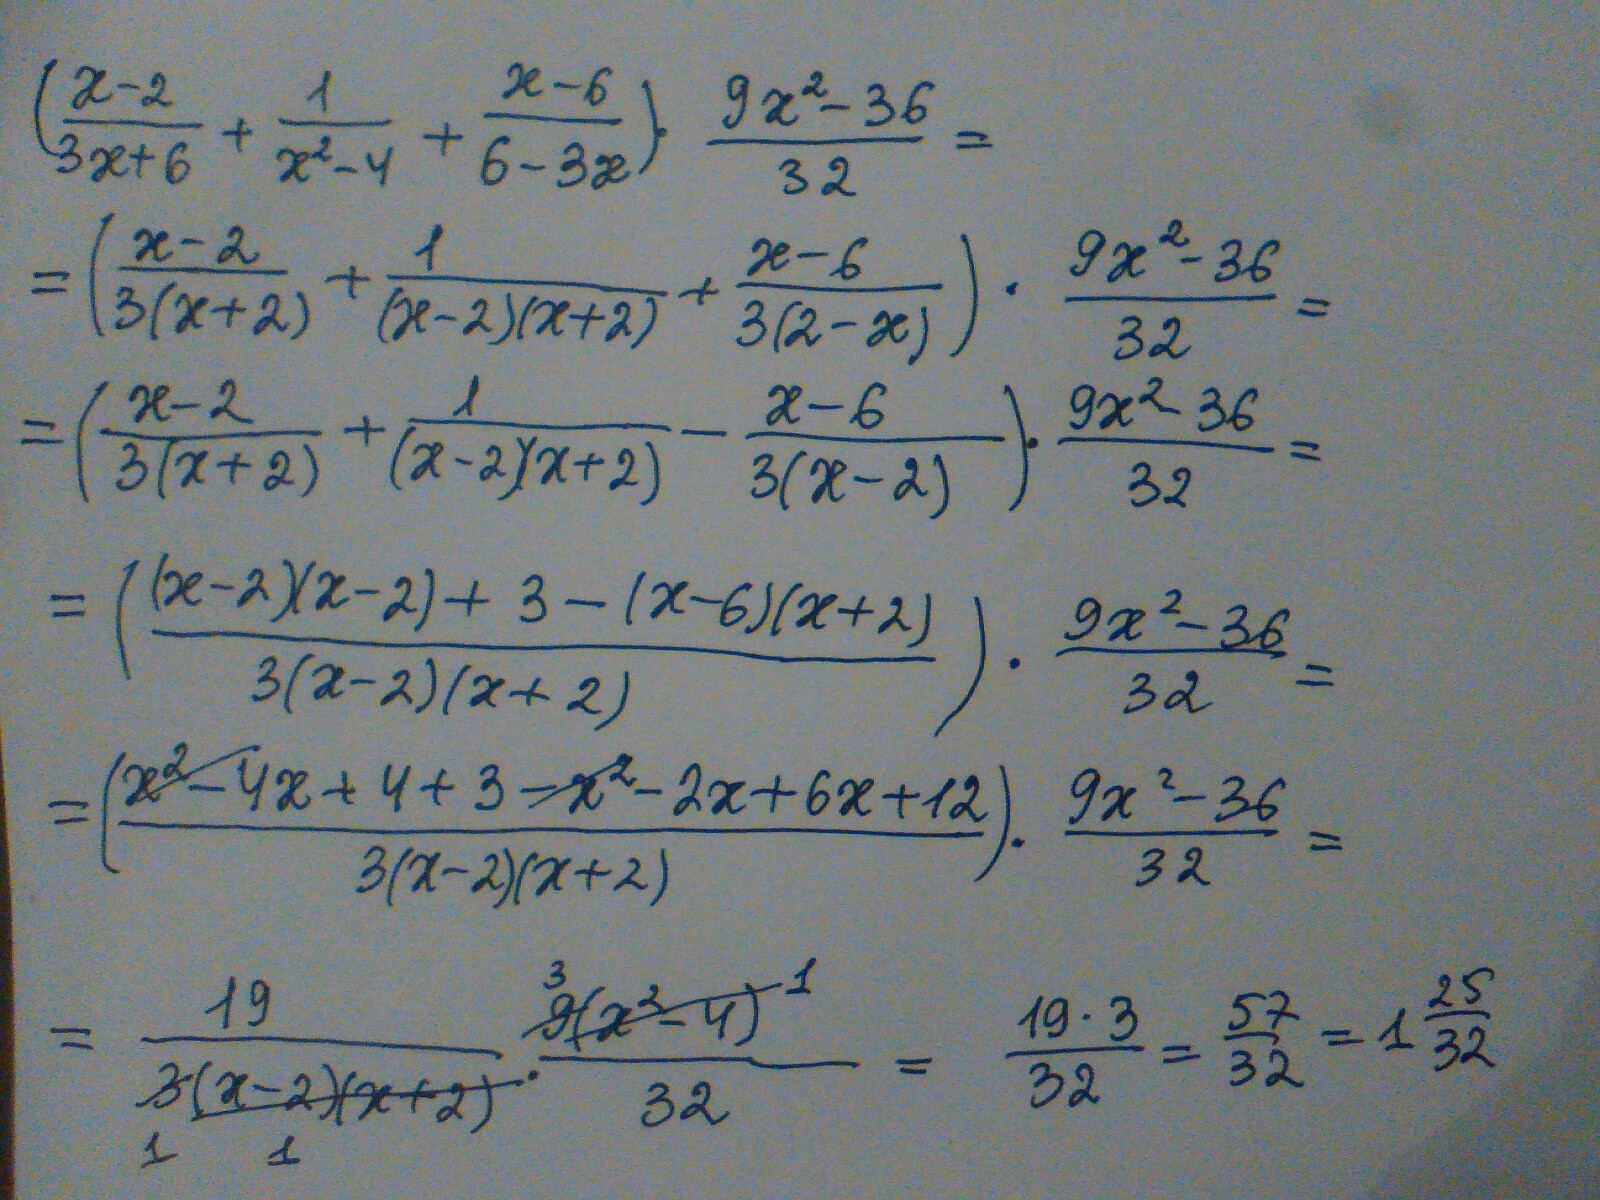 ((x-2)/(3x+6) + 1/(x²-4) + (x-6)/(6-3x)) · (9x²-36)/32 =
= ((x-2)/(3(x+2)) + 1/((x-2)(x+2)) + (x-6)/(3(2-x))) · (9x²-36)/32 =
= ((x-2)/(3(x+2)) + 1/((x-2)(x+2)) - (x-6)/(3(x-2))) · (9x²-36)/32 =
= (((x-2)(x-2)+3-(x-6)(x+2))/(3(x-2)(x+2))) · (9x²-36)/32 =
= ((x²-4x+4+3-x²-2x+6x+12)/(3(x-2)(x+2))) · (9x²-36)/32 =
3 1
= 19/(3(x-2)(x+2)) · 9(x²-4)/32 = (19·3)/32 = 57/32 = 1 25/32
1 1